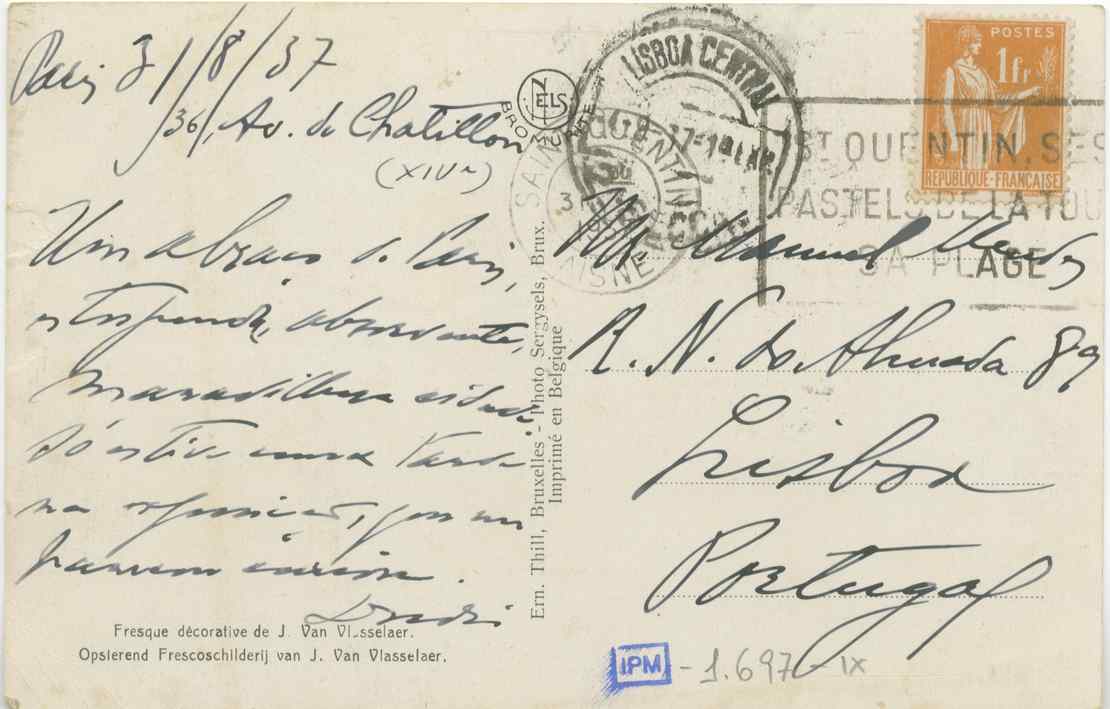 Paris 31/8/37
36, Av. de Chatillon
(XIVe)
Um abraço de Paris,
estupenda, absorvente,
maravilhosa cidade
Só estive uma tarde
na exposição, que me
pareceu
Fresque décorative de J. Van Vlasselaer.
Opsierend Frescoschilderij van J. Van Vlasselaer.
NELS
BROMURITE
Ern. Thill, Bruxelles - Photo Sergysels, Brux.
Imprimé en Belgique
LISBOA CENTRAL
SAINT QUENTIN
AISNE
ST QUENTIN, SES
PASTELS DE LA TOU
SA PLAGE
POSTES
1fr
REPUBLIQUE-FRANÇAISE
Manuel Mendes
R. N. do Almada 89
Lisboa
Portugal
IPM - 1.697 - IX